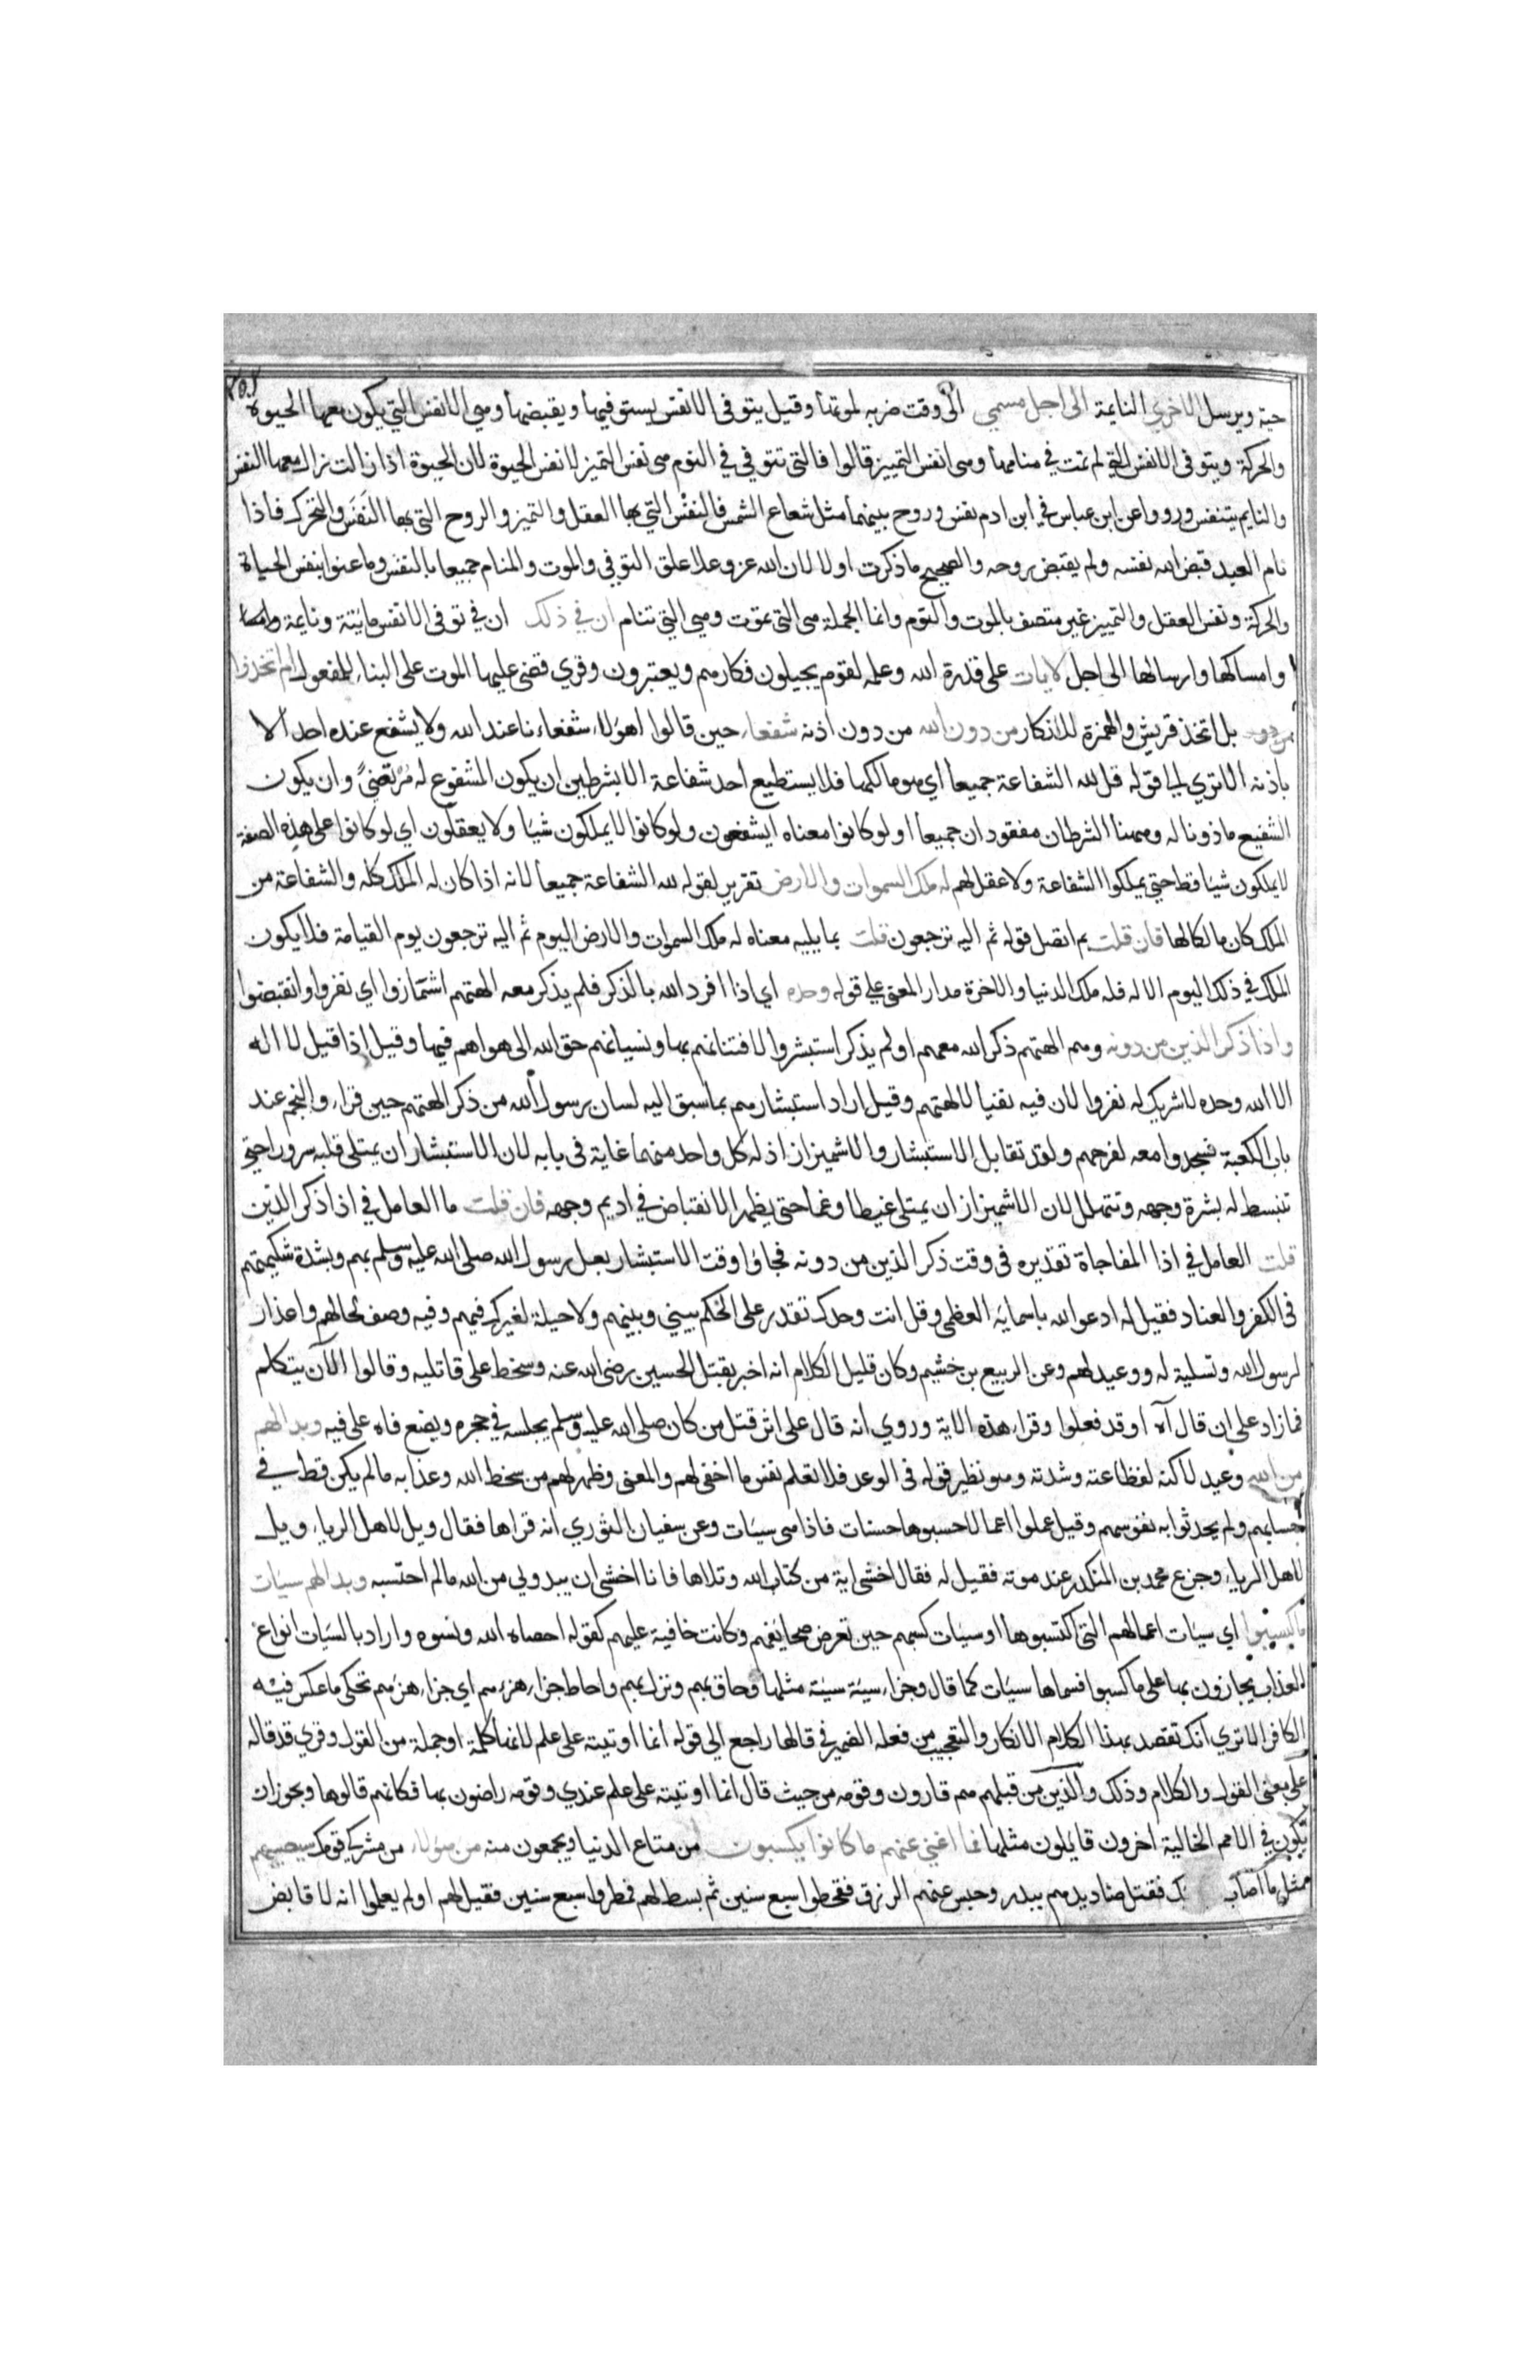 حية ويرسل الاخرى النايمة الى اجل مسمى الى وقت ضربه لموتها وقيل يتوفى الانفس يستوفيها ويقبضها وهى الانفس التي يكون معها الحيوة
والحركة ويتوفى الانفس التي لم تمت في منامها وهى انفس التمييز قالوا فالتى تتوفي في النوم هى نفس التميز لا نفس الحيوة لان الحيوة اذا زالت زال معها النفس
والنايم يتنفس ورووا عن ابن عباس في ابن ادم نفس وروح بينهما مثل شعاع الشمس فالنفس التي بها العقل والتميز والروح التى بها النفس والتحرك فاذا
نام العبد قبض الله نفسه ولم يقبض روحه والصحيح ما ذكرت اولا لان الله عز وعلا علق التوفي والموت والمنام جميعا بالنفس وما عنوا بنفس الحياة
والحركة ونفس العقل والتمييز غير متصف بالموت والنوم وانما الجملة هى التى تموت وهي التي تنام ان في ذلك ان في توفى الانفس مايتة ونايمة
وامساكها وارسالها الى اجل لايات على قدرة الله وعلمه لقوم يجيلون فكارهم ويعتبرون وقري قضى عليها الموت على البناء للمفعول ام اتخذوا
بل اتخذ قريش والهمزة للانكار من دون الله من دون اذنه شفعاء حين قالوا اهؤلاء شفعاءنا عند الله ولا يشفع عنده احد الا
باذنه الا تري الى قوله قل لله الشفاعة جميعا اي هو مالكها فلا يستطيع احد شفاعة الا بشرطين ان يكون المشفوع له مرتضىً وان يكون
الشفيع ماذونا له وههنا الشرطان مفقودان جميعا اولو كانوا معناه ايشفعون ولو كانوا لا يملكون شيا ولا يعقلون اي لو كانوا على هذه الصفة
لا يملكون شيا قط حتى يملكوا الشفاعة ولا عقل لهم له ملك السموات والارض تقرير لقوله لله الشفاعة جميعا لانه اذا كان له الملك كله والشفاعة من
الملك كان مالكا لها فان قلت بم اتصل قوله ثم اليه ترجعون قلت بما يليه معناه له ملك السموات والارض اليوم ثم اليه ترجعون يوم القيامة فلا يكون
الملك في ذلك اليوم الا له فله ملك الدنيا والاخرة مدار المعنى على قوله وحده اي اذا افرد الله بالذكر فلم يذكر معه الهتهم اشمازوا اي نفروا وانقبضوا
واذا ذكر الذين من دونه وهم الهتهم ذكر الله معهم اولم يذكر استبشروا لافتتانهم بها ونسيانهم حق الله الى هواهم فيها وقيل اذا قيل لا اله
الا الله وحده لا شريك له نفروا لان فيه نفيا لالهتهم وقيل اراد استبشارهم بما سبق اليه لسان رسول الله من ذكر الهتهم حين قراء والنجم عند
باب الكعبة فسجدوا معه لفرحهم ولقد تقابل الاستبشار والاشميزاز اذ له كل واحد منهما غاية في بابه لان الاستبشار ان يمتلى قلبه سرورا حتى
تنبسط له بشرة وجهه وتتهلل لان الاشميزاز ان يمتلى غيظا وغما حتى يظهر الانقباض في اديم وجهه فان قلت ما العامل في اذا ذكر الذين
قلت العامل في اذا المفاجاة تقديره فى وقت ذكر الذين من دونه فجاؤا وقت الاستبشار بعل رسول الله صلى الله عليه وسلم بهم وبشدة شكيمتهم
فى الكفر والعناد فقيل له ادعو الله باسمايه العظمى وقل انت وحدك تقدر على الحكم بيني وبينهم ولا حيلة لغيرك فيهم وفيه وصف لحالهم واعذار
لرسول الله وتسلية له ووعيد لهم وعن الربيع بن خثيم وكان قليل الكلام انه اخبر بقتل الحسين رضى الله عنه وسخط على قاتليه وقالوا الآن يتكلم
فما زاد على ان قال آه اوقد فعلوا وقراء هذه الاية وروي انه قال على اثر قتل من كان صلى الله عليه وسلم يجلسه في حجره ويضع فاه على فيه وبدا لهم
من الله وعيد لا كنه لفظاعته وشدته وهو نظير قوله فى الوعد فلا تعلم نفس ما اخفى لهم والمعنى وظهر لهم من سخط الله وعذابه ما لم يكن قط في
حسابهم ولم يحدثوا به نفوسهم وقيل عملوا اعمالا حسبوها حسنات فاذا هى سيات وعن سفيان الثوري انه قراها فقال ويل لاهل الرياء ويل
لاهل الرياء وجزع محمد بن المنكدر عند موته فقيل له فقال اخشى اية من كتاب الله وتلاها فانا اخشى ان يبدو لي من الله مالم احتسبه وبدا لهم سيات
ما كسبوا اي سيات اعمالهم التى اكتسبوها او سيات كسبهم حين تعرض صحايفهم وكانت خافية عليهم كقوله احصاه الله ونسوه واراد بالسيات انواع
العذاب يجازون بها على ما كسبوا فسماها سيات كما قال وجزاء سيئة سيئة مثلها وحاق بهم ونزل بهم واحاط جزاء هزءهم اي جزاء هزءهم تحكى ما عكس فيه
الكافر الا تري انك تقصد بهذا الكلام الانكار والتعجب من فعله الضمير في قالها راجع الى قوله انما اوتيته على علم لانها كلمة او جملة من القول وقري قد قاله
على معنى القول والكلام وذلك والذين من قبلهم هم قارون وقومه من حيث قال انما اوتيته على علم عندي وقومه راضون بها فكانهم قالوها ويجوز ان
تكون في الامم الخالية اخرون قايلون مثلها فما اغنى عنهم ما كانوا يكسبون من متاع الدنيا ويجمعون منه من هؤلاء من مشركي قومك سيصيبهم
مثل ما اصاب فقتل صناديدهم ببدر وحبس عنهم الرزق فقحطوا سبع سنين ثم بسط لهم فمطروا سبع سنين فقيل لهم اولم يعلموا انه لا قابض